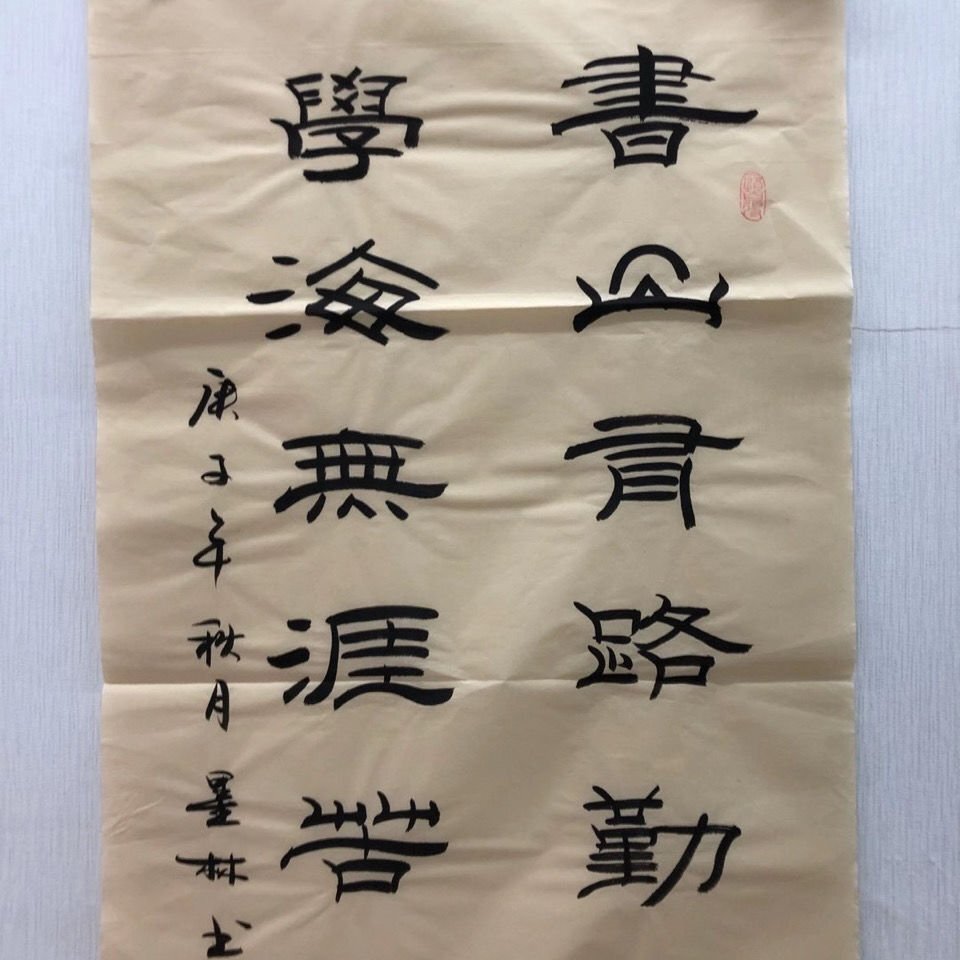 書山有路勤
學海無涯苦
庚子年秋月墨林书